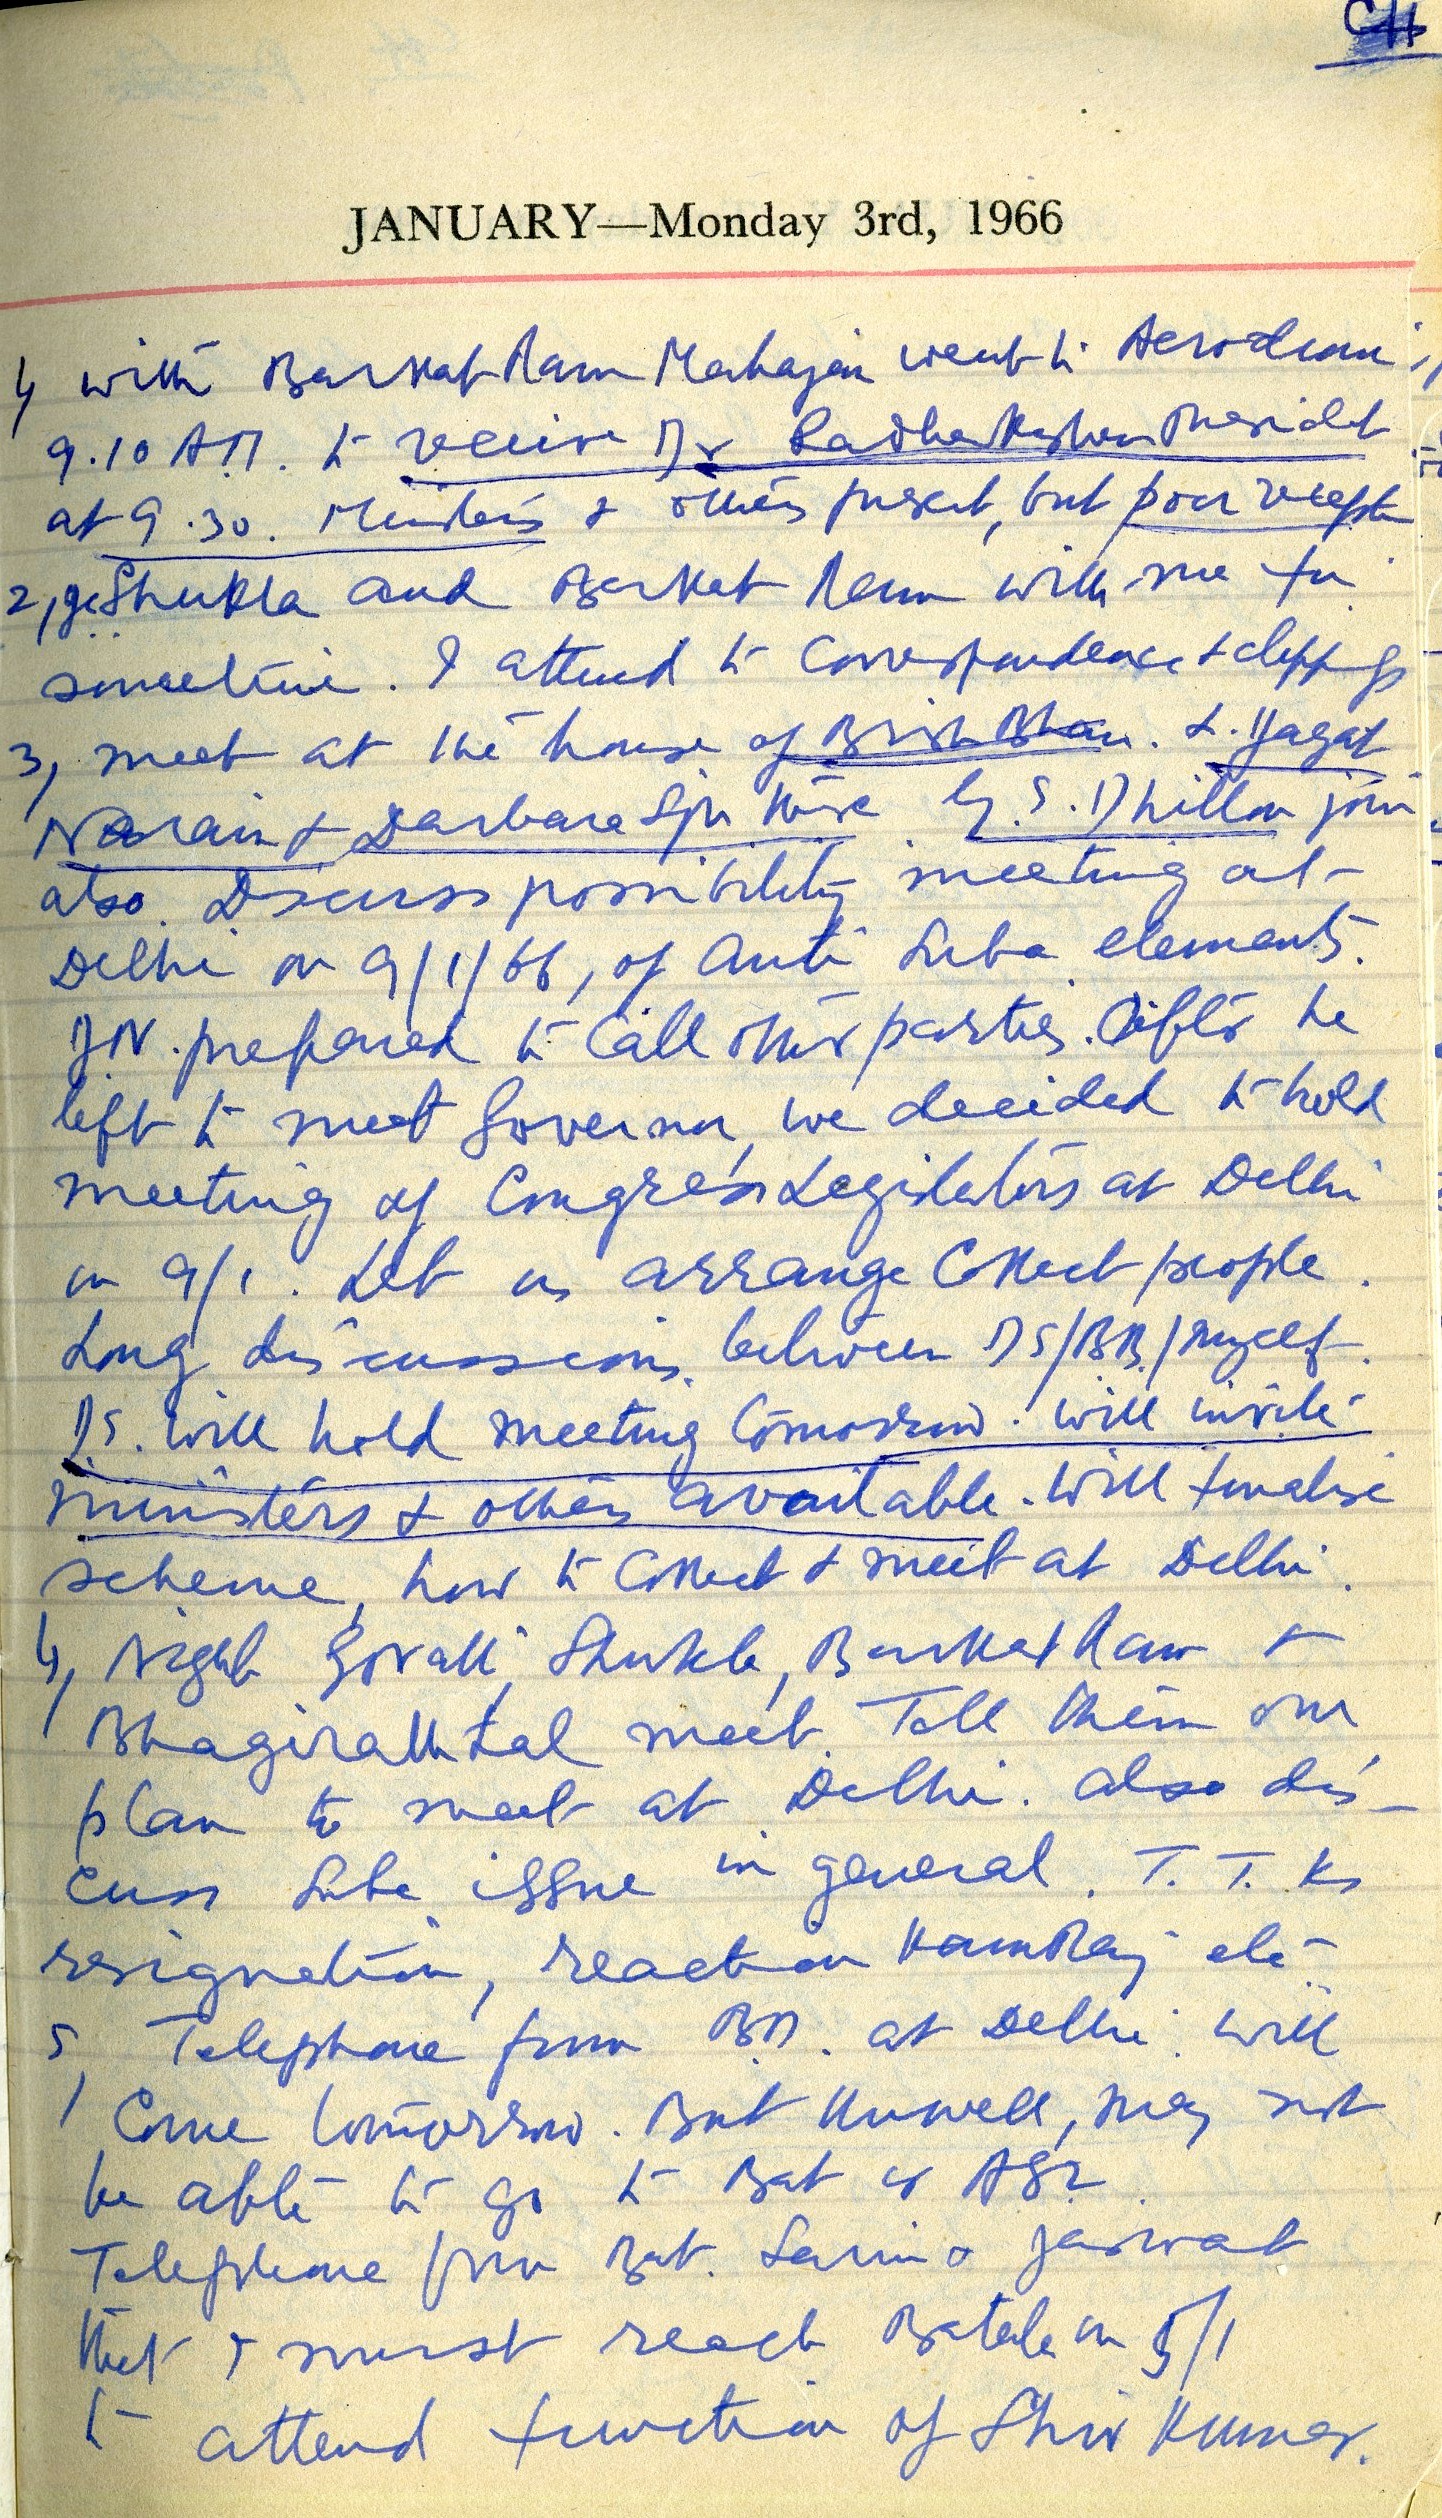 CH
JANUARY—Monday 3rd, 1966
1, with Barkat Ram Mahajan went to Aerodrome
9.10 AM. to receive Dr Radhakrishnan President
at 9.30. Ministers & others present, but poor reception
2, Shukla and Barkat Ram with me for
sometime. I attend to correspondence & clippings
3, meet at the house of Brish Bhan. & Jagat
Narain & Darbara Singh there G.S. Dhillon join
also. Discuss possibility meeting at
Delhi on 9/1/66, of Anti Suba elements.
JN. prepared to call other parties. After he
left to meet Governor, we decided to hold
meeting of Congress Legislators at Delhi
on 9/1. Let us arrange collect people.
Long discussions between DS/BB/myself.
DS. will hold meeting tomorrow. will invite
ministers & others available. Will finalise
scheme, how to collect & meet at Delhi.
4, Night Shukla, Barkat Ram &
Bhagirath Lal meet. Tell them our
plan to meet at Delhi. Also dis-
cuss Suba issue in general. T. T. Ks
resignation, reaction KamRaj etc
5, Telephone from at Delhi. Will
come tomorrow. But unwell, may not
be able to go to Bat or ASR.
Telephone from Bat. Jaswant
that I must reach Batala on 5/1
to attend function of Shiv Kumar.